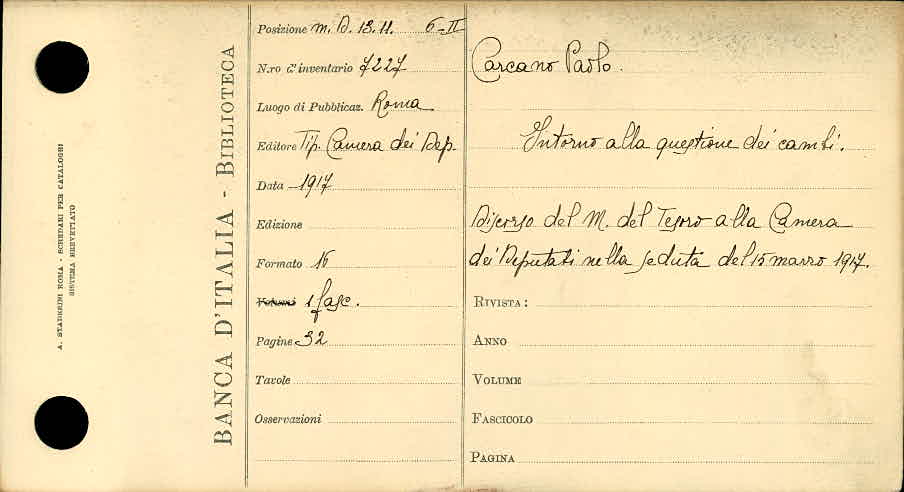 A. STADERINI ROMA - SCHEDARI PER CATALOGHI
SISTEMA BREVETTATO
BANCA D'ITALIA - BIBLIOTECA
Posizione m. D. 13. 11. 6-II
N.ro d'inventario 7227
Luogo di Pubblicaz. Roma
Editore Tip. Camera dei Dep.
Data 1917
Edizione
Formato 16
Volumi 1 fasc.
Pagine 32
Tavole
Osservazioni
Carcano Paolo.
Intorno alla questione dei cambi.
Discorso del M. del Tesoro alla Camera
dei Deputati nella seduta del 15 marzo 1917.
RIVISTA:
ANNO
VOLUME
FASCICOLO
PAGINA